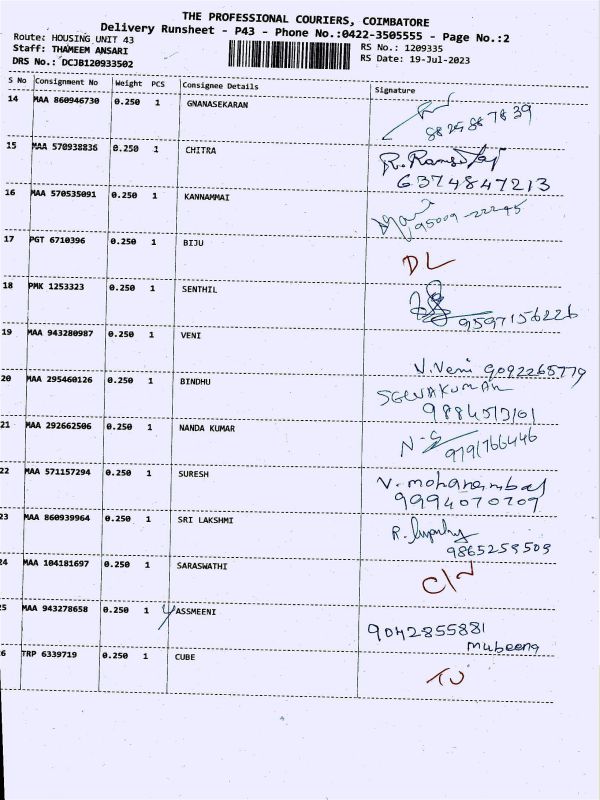 THE PROFESSIONAL COURIERS, COIMBATORE
Delivery Runsheet - P43 - Phone No.:0422-3505555 - Page No.:2
Route: HOUSING UNIT 43
RS No.: 1209335
Staff: THAMEEM ANSARI
RS Date: 19-Jul-2023
DRS No.: DCJB120933502
S No Consignment No Weight PCS Consignee Details Signature
14 MAA 860946730 0.250 1 GNANASEKARAN
8825887839
15 MAA 570938836 0.250 1 CHITRA
6374847213
16 MAA 570535091 0.250 1 KANNAMMAI
95009-22245
17 PGT 6710396 0.250 1 BIJU
DL
18 PMK 1253323 0.250 1 SENTHIL
9597156226
19 MAA 943280987 0.250 1 VENI
V.Veni 9092265779
20 MAA 295460126 0.250 1 BINDHU
SELVAKUMAR
9884573101
21 MAA 292662506 0.250 1 NANDA KUMAR
9791766446
22 MAA 571157294 0.250 1 SURESH
9994070709
23 SRI LAKSHMI MAA 860939964 0.250 1
9865259509
24 MAA 104181697 0.250 1 SARASWATHI
C/N
25 MAA 943278658 0.250 1 YASSMEENI
9042855881
Mubeena
6 TRP 6339719 0.250 1 CUBE